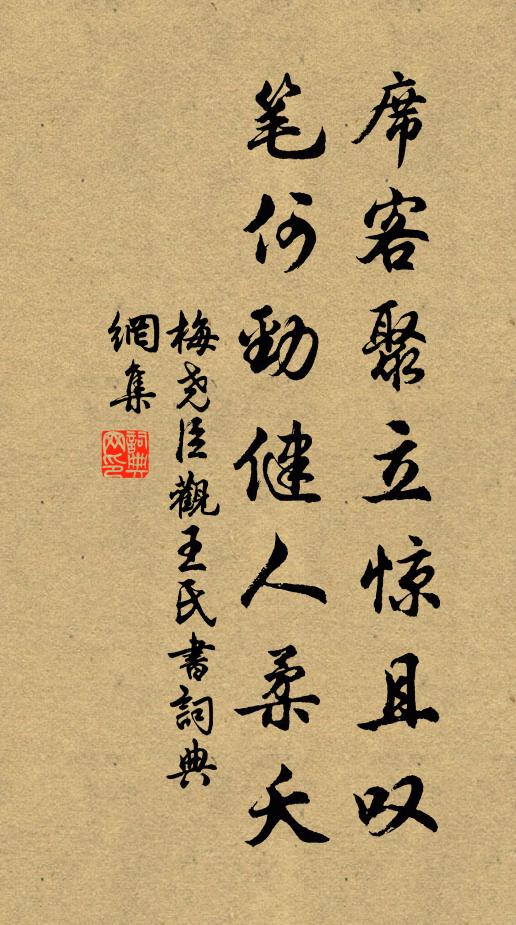 席客聚立惊且叹
笔何劲健人柔夭
梅尧臣觀王氏書詞典
網集
詞典
网印